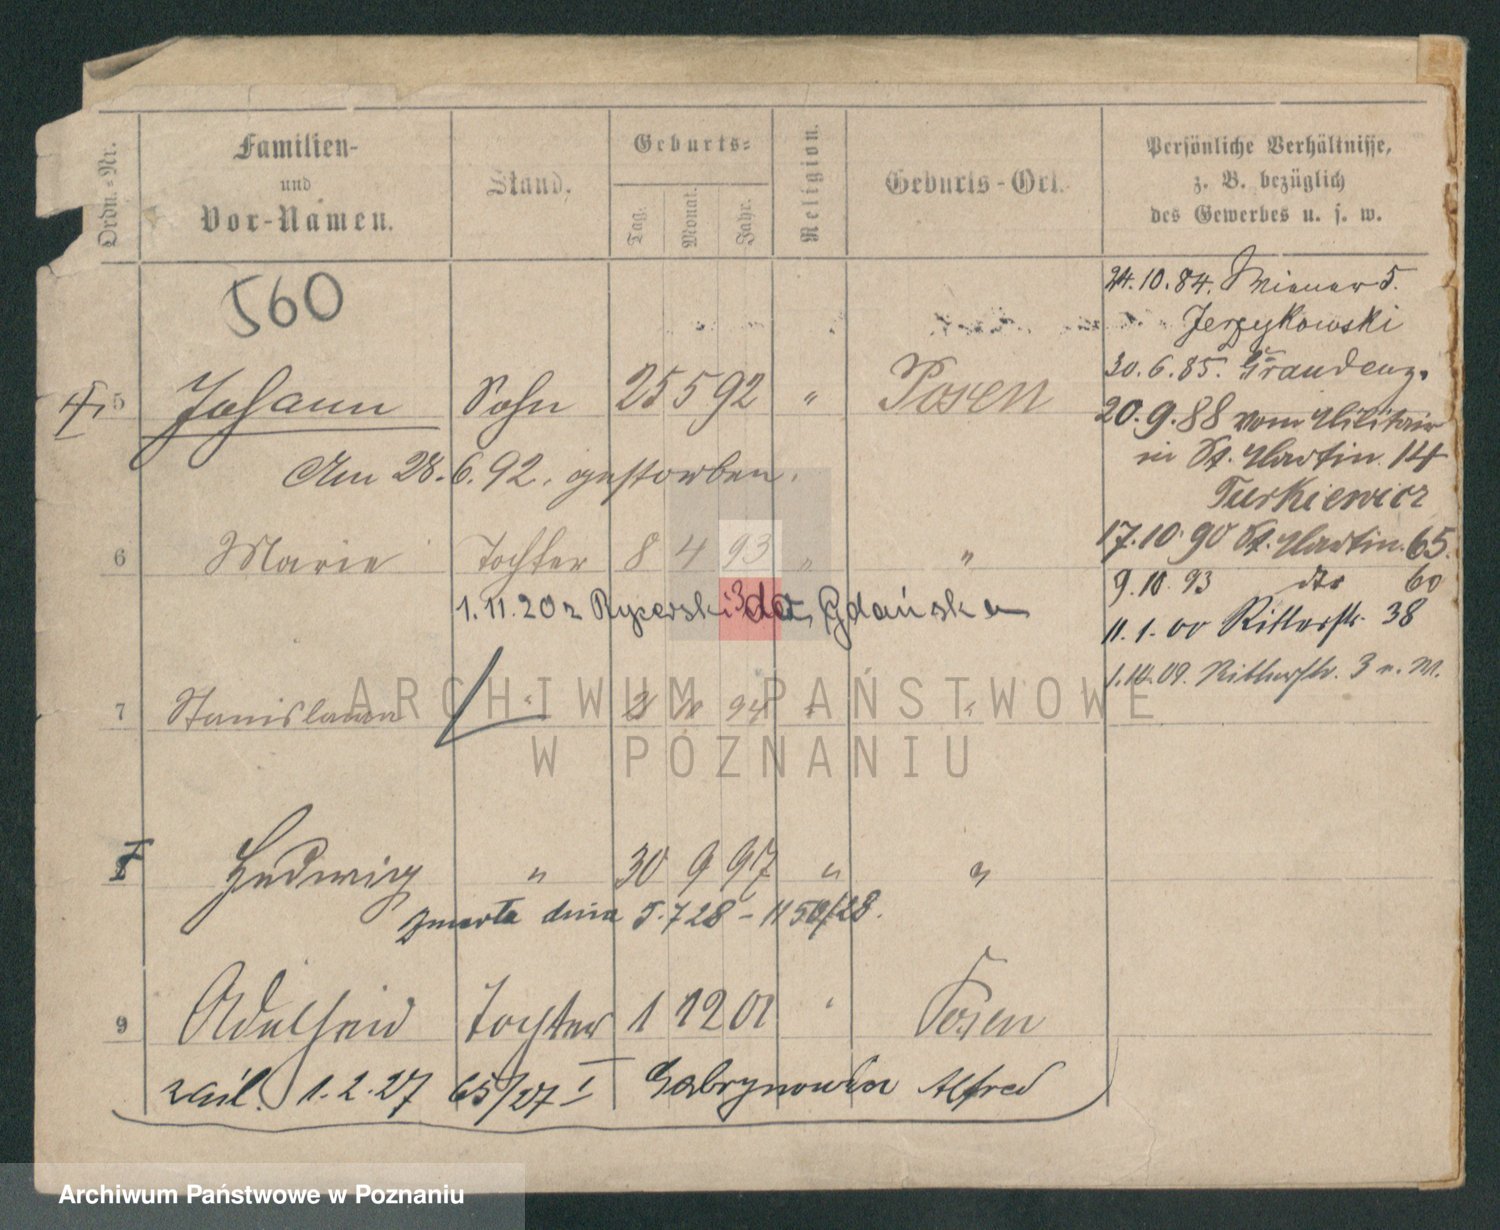 Ordn.-Nr.
Familien-
und
Vor-Namen.
Stand.
Geburts-
Tag.
Monat.
Jahr.
Religion.
Geburts-Ort.
Persönliche Verhältnisse,
z. B. bezüglich
des Gewerbes u. s. w.
560
24.10.84. Wiener 5.
Jerzykowski
30.6.85. Graudenz.
5 Johann Sohn 25 5 92 " Posen
20.9.88 vom Militair
in St. Martin 14
Turkiewicz
Am 28.6.92. gestorben.
17.10.90 St. Martin 65.
6 Marie Tochter 8 4 93 " "
9.10.93 dto 60
1.11.20 z Rycerski 3 do Gdańska
11.1.00 Ritterstr. 38
1.10.09. Ritterstr. 3
7 Stanislawa " 94 " "
ARCHIWUM PAŃSTWOWE
W POZNANIU
Hedwig " 30 9 97 " "
zmarła dnia 5.7 28 - II 50/28.
9 Adelheid Tochter 1 12 01 " Posen
1.2.27 65/27 I Alfred
Archiwum Państwowe w Poznaniu